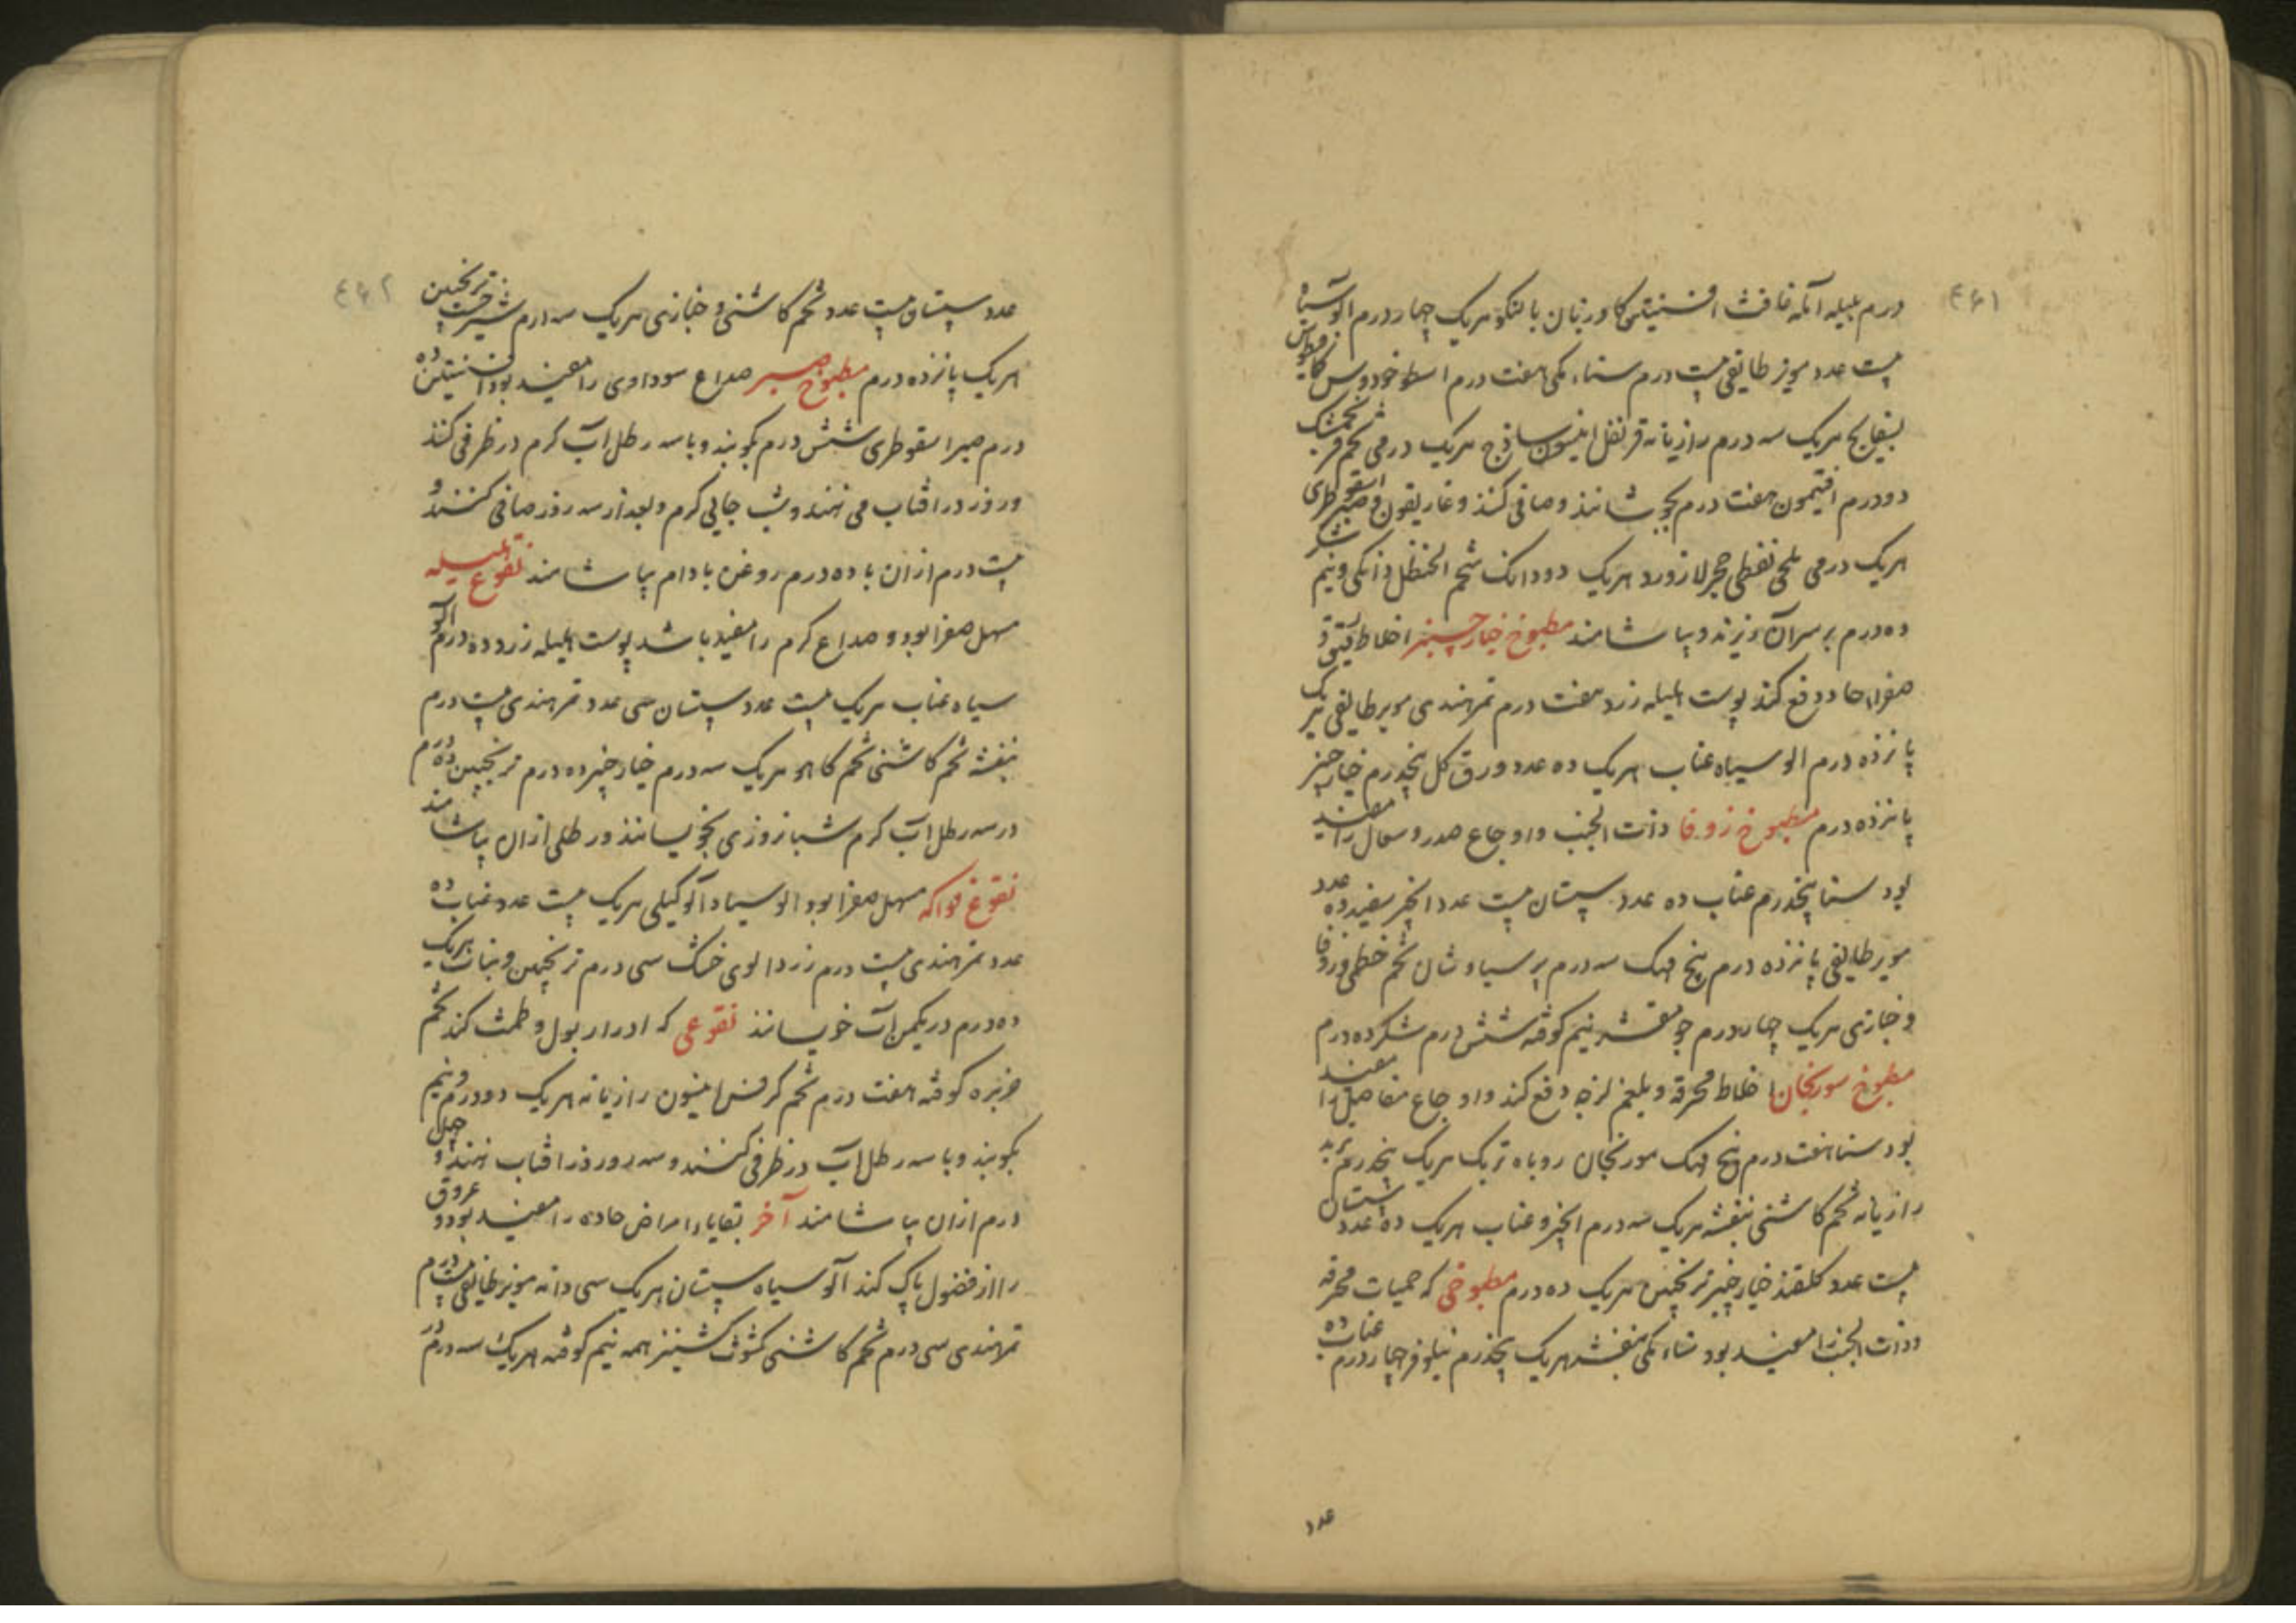 ٤٤١
درم بلیله آمله غافث افسنتین کاوزبان بالنکو هریک چهار درم الو سیاه
بیست عدد مویز طایفی بیست درم سناء مکی هفت درم اسطوخودوس کمافیطوس
بسفایج هریک سه درم رازیانه قرنفل انیسون ساذج هریک درمی تخم فرنجمشک
دو درم افتیمون هفت درم بجوشانند و صافی کنند و غاریقون و صبر اسقوطری
هریک درمی ملح نفطی حجر لازورد هریک دو دانک شحم الحنظل دانکی و نیم شکر
ده درم بر سر آن ریزند و بیاشامند مطبوخ خیارچنبر اخلاط
صفرا حاد دفع کند پوست هلیله زرد هفت درم تمرهندی مویز طایفی هریک
پانزده درم الو سیاه عناب هریک ده عدد ورق کل پنجدرم خیارچنبر
پانزده درم مطبوخ زوفا ذات الجنب و اوجاع صدر و سعال را مفید
بود سنا پنجدرم عناب ده عدد سپستان بیست عدد انجیر سفید ده عدد
مویز طایفی پانزده درم بیخ مهک سه درم پرسیاوشان تخم خطمی و زوفا
و خبازی هریک چهار درم جو مقشر نیم کوفته شش درم شکر ده درم
مطبوخ سورنجان اخلاط محرقه و بلغم لزجه دفع کند و اوجاع مفاصل را مفید
بود سنا هفت درم بیخ مهک سورنجان روباه تربک هریک پنجدرم تربد
رازیانه تخم کاشنی بنفشه هریک سه درم انجیر و عناب هریک ده عدد سپستان
بیست عدد کلقند خیارچنبر ترنجبین هریک ده درم مطبوخی که حمیات محرقه
و ذات الجنب را مفید بود سناء مکی بنفشه هریک پنجدرم نیلوفر چهار درم عناب ده
عدد
٤٤٢
عدد سپستان بیست عدد تخم کاشنی و خبازی هریک سه درم شیرخشت ترنجبین
هریک پانزده درم مطبوخ صبر صداع سوداوی را مفید بود افسنتین ده
درم صبر اسقوطری شش درم بکوبند و با سه رطل آب کرم در ظرفی کنند
و روز در افتاب می نهند و شب جایی کرم و بعد از سه روز صافی کنند و
بیست درم ازان با ده درم روغن بادام بیاشامند نقوع هلیله
مسهل صفرا بود و صداع کرم را مفید باشد پوست هلیله زرد ده درم آلو
سیاه عناب هریک بیست عدد سپستان سی عدد تمرهندی بیست درم
بنفشه تخم کاشنی تخم کاهو هریک سه درم خیارچنبر ده درم ترنجبین ده درم
در سه رطل آب کرم شبانروزی بخویسانند و رطلی ازان بیاشامند
نقوع فواکه مسهل صفرا بود الو سیاه و آلو کیلی هریک بیست عدد عناب ده
عدد تمرهندی بیست درم زردالوی خشک سی درم ترنجبین و نبات هریک
ده درم در یکمن آب خویسانند نقوعی که ادرار بول و طمث کند تخم
خربزه کوفته هفت درم تخم کرفس انیسون رازیانه هریک دو درم و نیم
بکوبند و با سه رطل آب در ظرفی کنند و سه روز در افتاب نهند و چهل
درم ازان بیاشامند آخر بقایاء امراض حاده را مفید بود و عروق
را از فضول پاک کند آلو سیاه سپستان هریک سی دانه مویز طایفی بیست درم
تمرهندی سی درم تخم کاشنی کشوث کشنیز همه نیم کوفته هریک سه درم